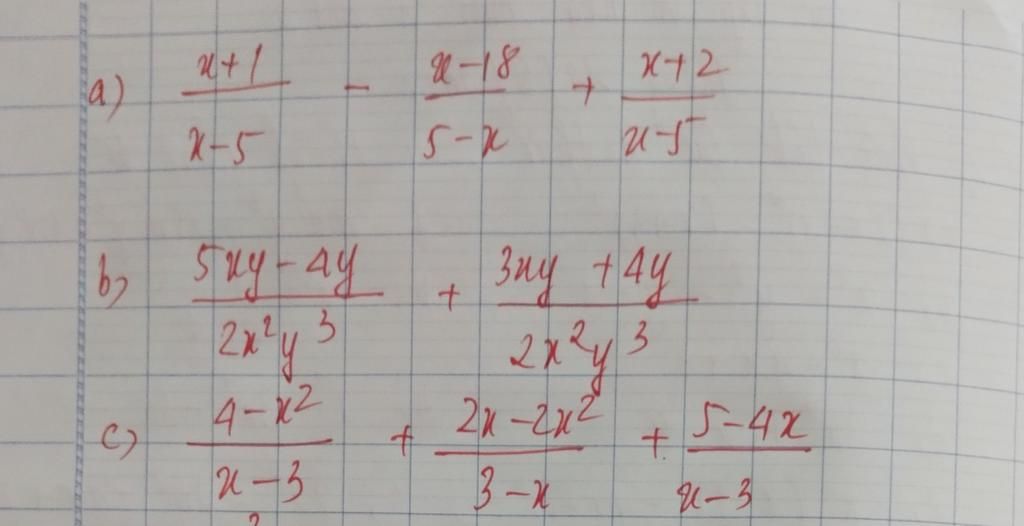 a) \frac{x+1}{x-5} - \frac{x-18}{5-x} + \frac{x+2}{x-5}
b) \frac{5xy-4y}{2x^2y^3} + \frac{3xy+4y}{2x^2y^3}
c) \frac{4-x^2}{x-3} + \frac{2x-2x^2}{3-x} + \frac{5-4x}{x-3}